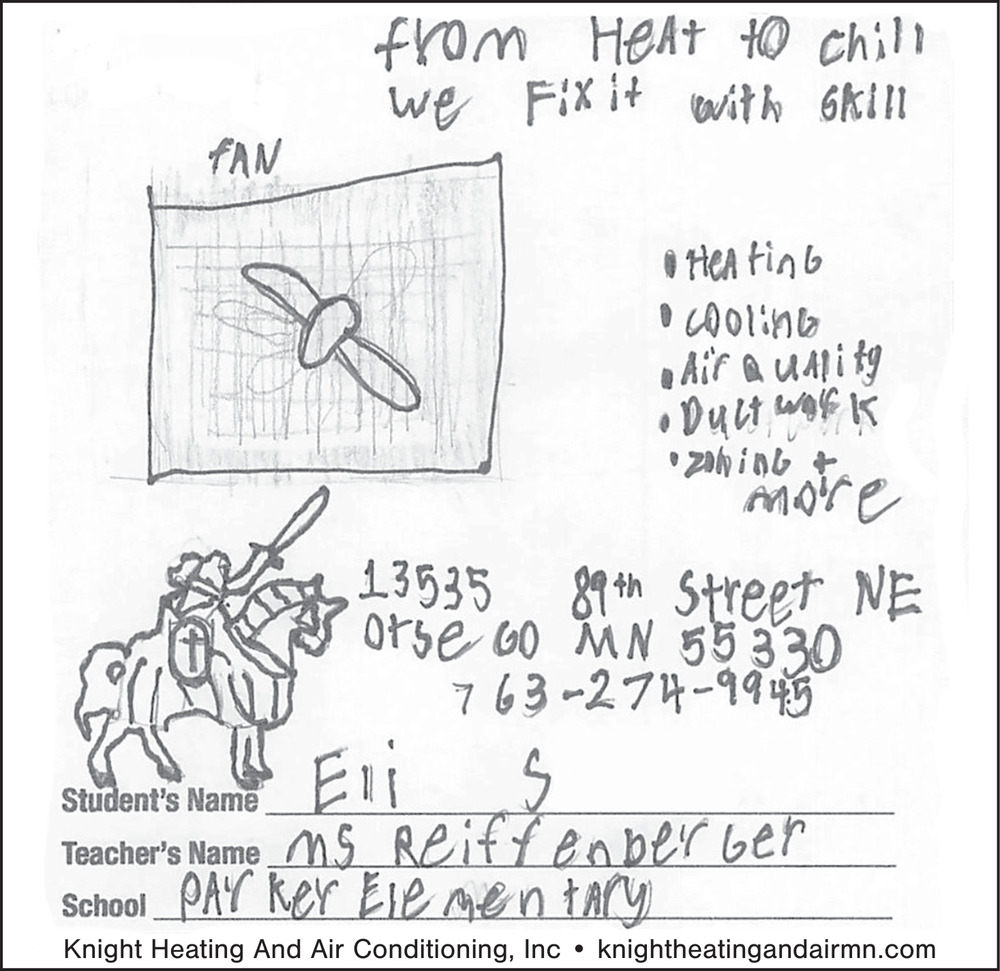 from HeAt to chill
we Fix it with skill
fAN
• HeAting
• cooling
• Air QuAlity
• Duct work
• zoning +
more
13535 89th Street NE
Otsego MN 55330
763-274-9945
Student's Name Eli S
Teacher's Name Ms Reiffenberger
School PArker ElementAry
Knight Heating And Air Conditioning, Inc • knightheatingandairmn.com